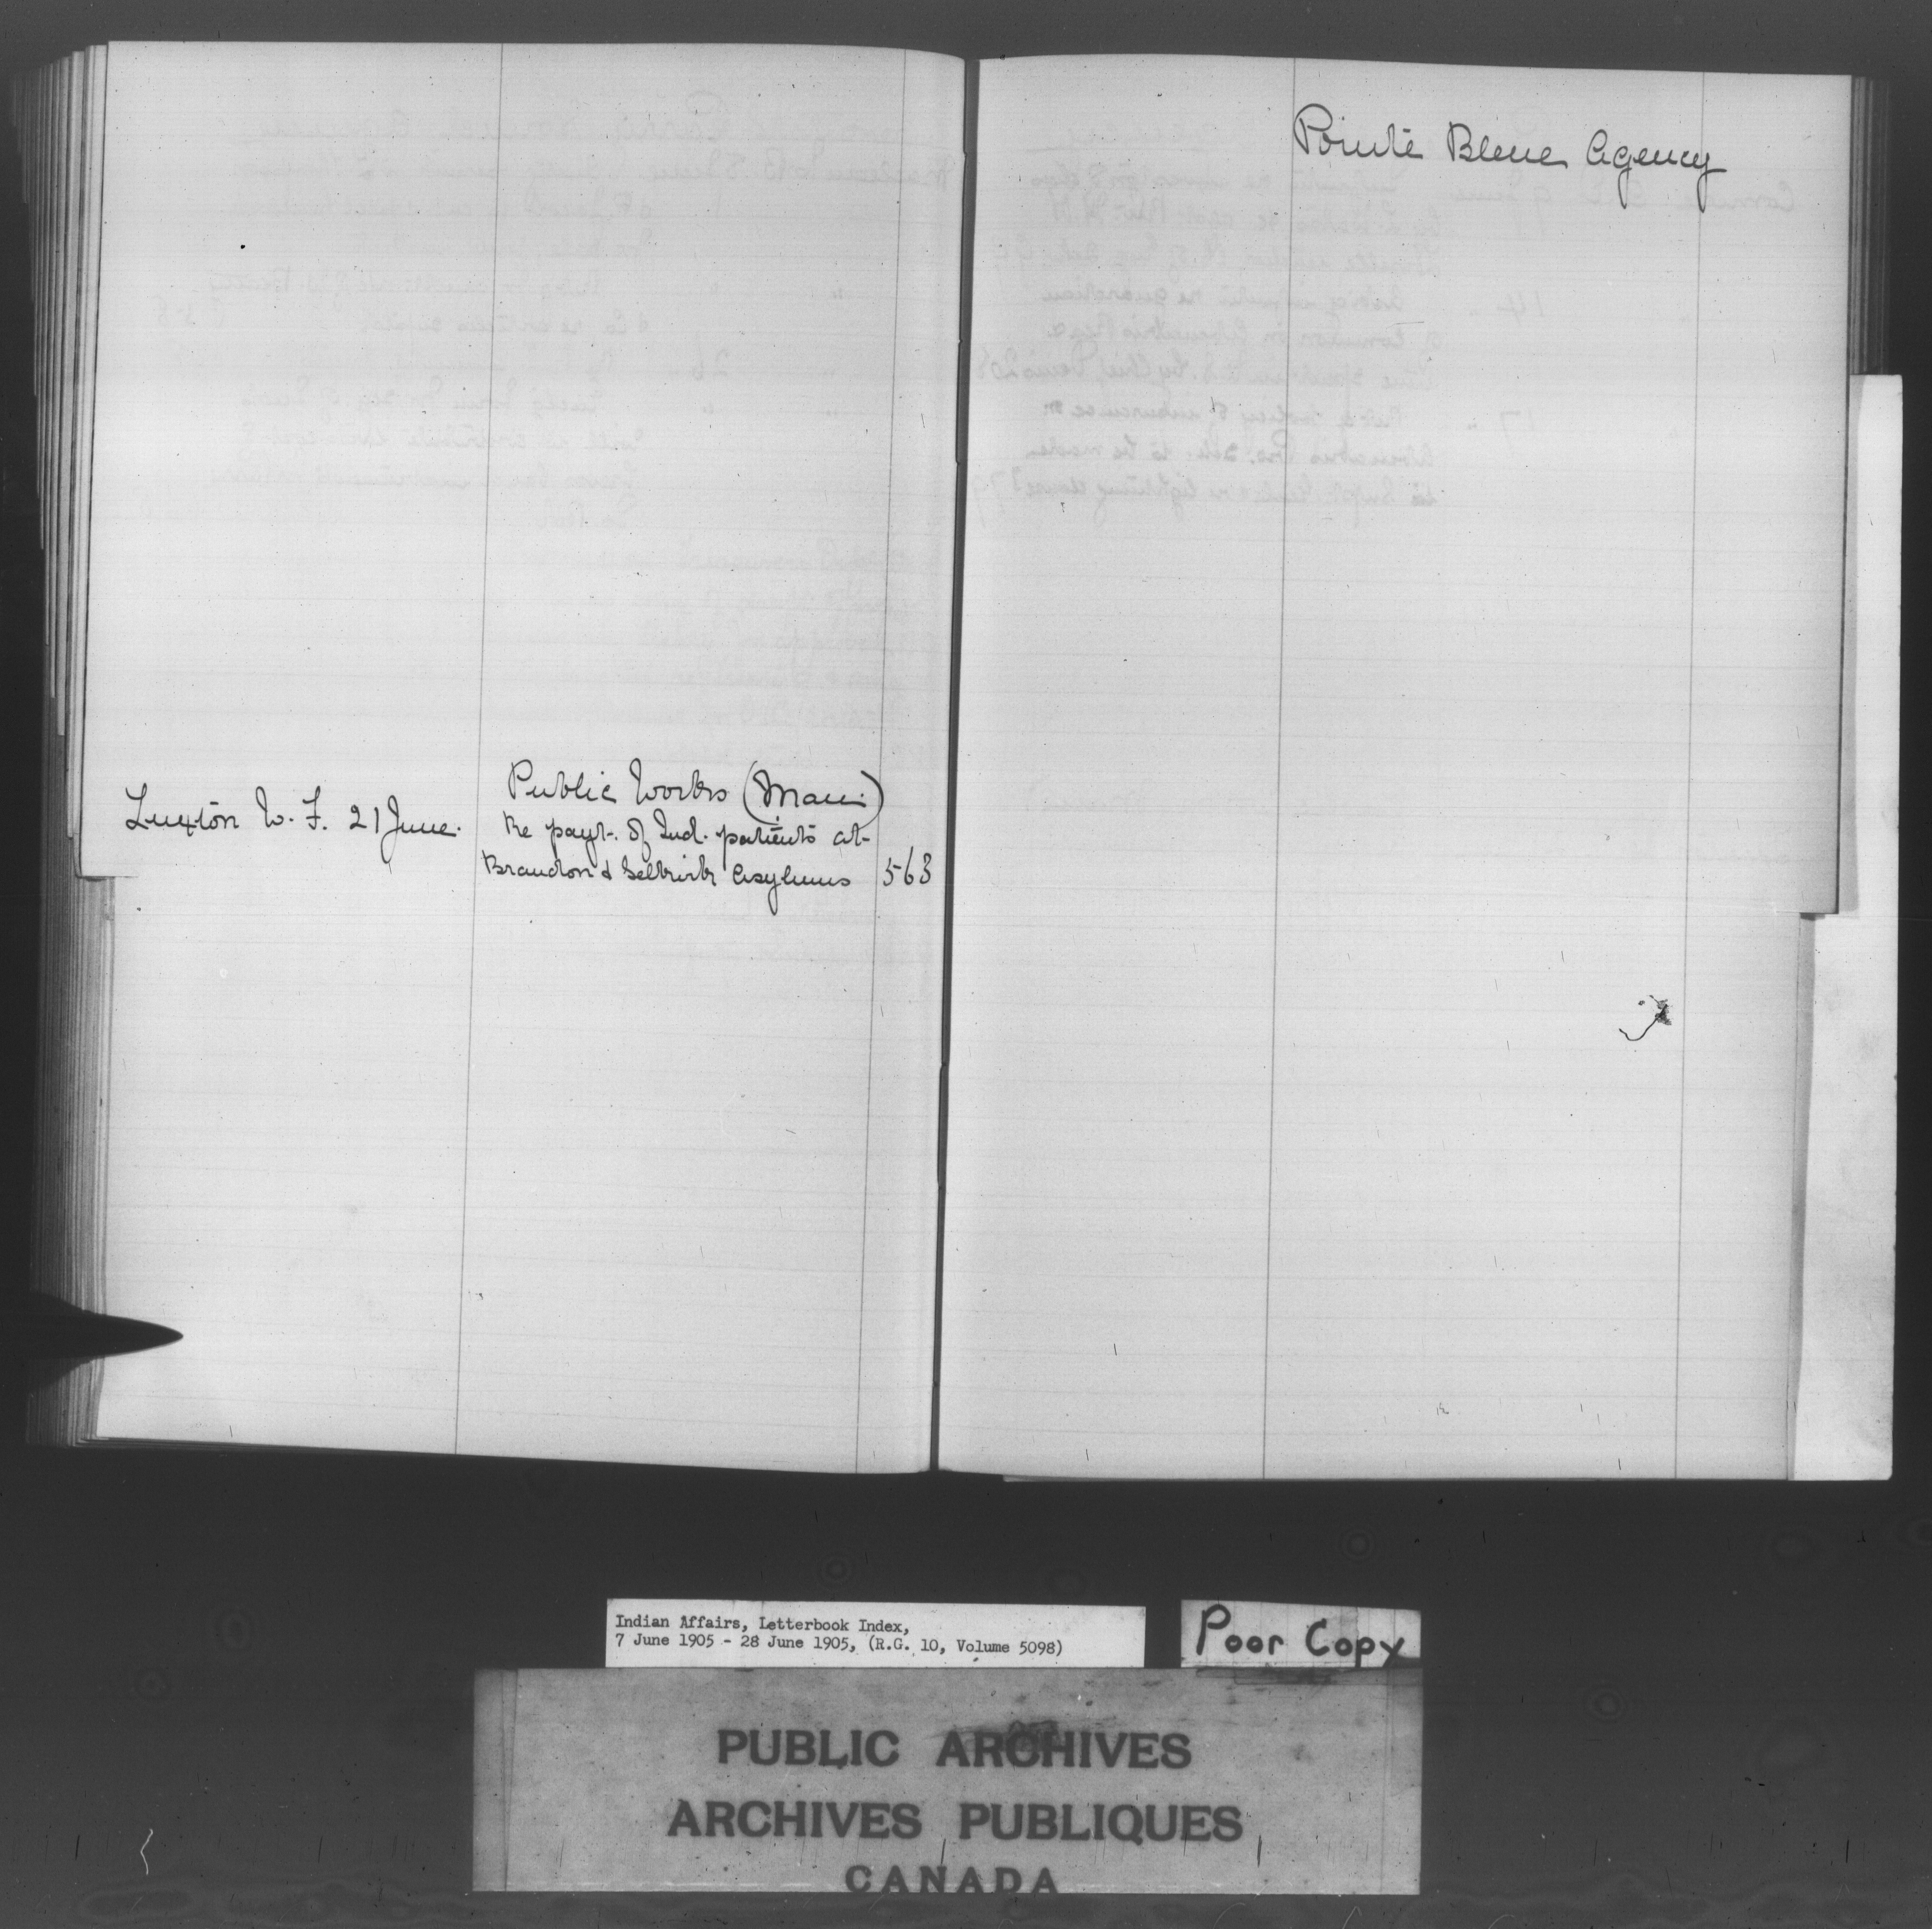 Public Works (Man.)
Luxton W. F. 21 June.
Re payt. of Ind. patients at
Brandon & Selkirk Asylums 563
Pointe Bleue Agency
Indian Affairs, Letterbook Index,
7 June 1905 - 28 June 1905, (R.G. 10, Volume 5098)
Poor Copy
PUBLIC ARCHIVES
ARCHIVES PUBLIQUES
CANADA